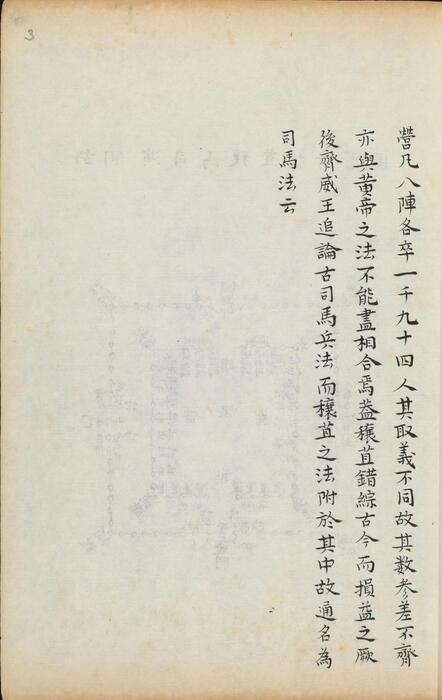 3
營凡八陣各卒一千九十四人其取義不同故其数参差不齊
亦與黄帝之法不能盡相合焉葢穰苴錯綜古今而損益之厥
後齊威王追論古司馬兵法而穰苴之法附於其中故通名為
司馬法云